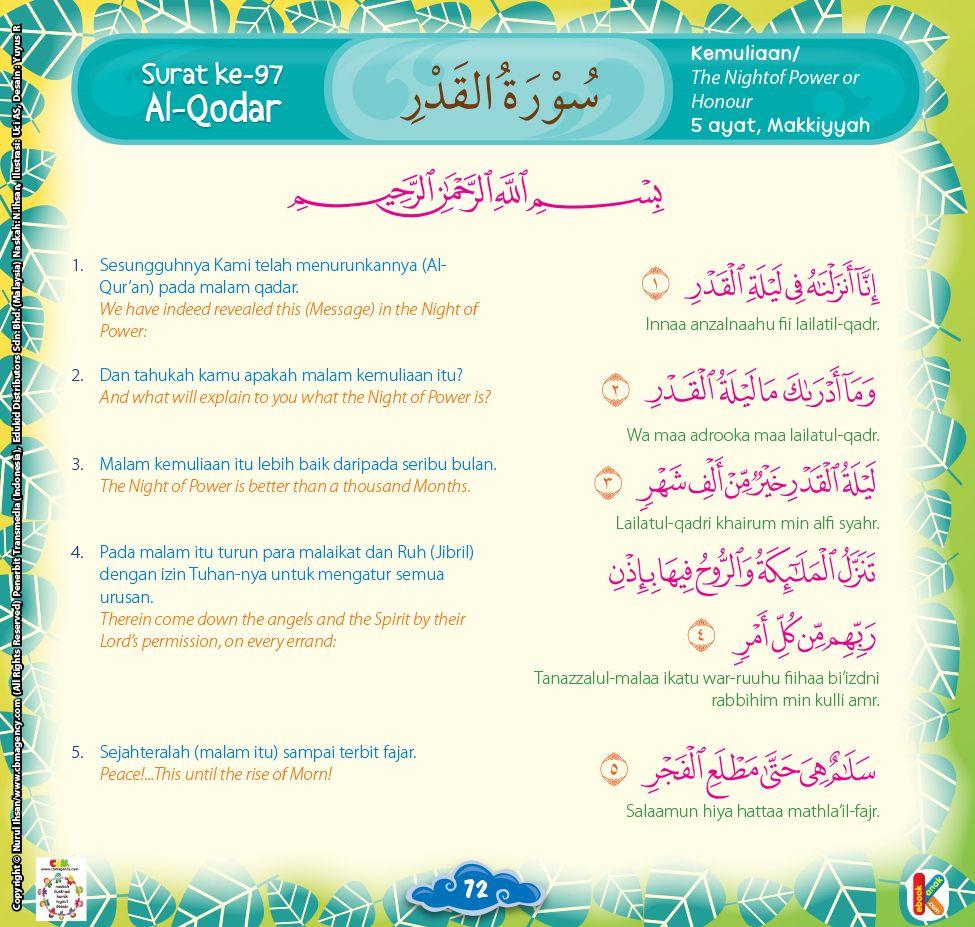 Surat ke-97
Al-Qodar
سُوْرَةُ الْقَدْرِ
Kemuliaan/
The Nightof Power or
Honour
5 ayat, Makkiyyah
بِسْمِ ٱللَّهِ ٱلرَّحْمَٰنِ ٱلرَّحِيمِ
1. Sesungguhnya Kami telah menurunkannya (Al-
Qur'an) pada malam qadar.
We have indeed revealed this (Message) in the Night of
Power:
إِنَّآ أَنزَلْنَٰهُ فِى لَيْلَةِ ٱلْقَدْرِ ١
Innaa anzalnaahu fii lailatil-qadr.
2. Dan tahukah kamu apakah malam kemuliaan itu?
And what will explain to you what the Night of Power is?
وَمَآ أَدْرَىٰكَ مَا لَيْلَةُ ٱلْقَدْرِ ٢
Wa maa adrooka maa lailatul-qadr.
3. Malam kemuliaan itu lebih baik daripada seribu bulan.
The Night of Power is better than a thousand Months.
لَيْلَةُ ٱلْقَدْرِ خَيْرٌ مِّنْ أَلْفِ شَهْرٍ ٣
Lailatul-qadri khairum min alfi syahr.
4. Pada malam itu turun para malaikat dan Ruh (Jibril)
dengan izin Tuhan-nya untuk mengatur semua
urusan.
Therein come down the angels and the Spirit by their
Lord's permission, on every errand:
تَنَزَّلُ ٱلْمَلَٰٓئِكَةُ وَٱلرُّوحُ فِيهَا بِإِذْنِ
رَبِّهِم مِّن كُلِّ أَمْرٍ ٤
Tanazzalul-malaa ikatu war-ruuhu fiihaa bi'izdni
rabbihim min kulli amr.
5. Sejahteralah (malam itu) sampai terbit fajar.
Peace!...This until the rise of Morn!
سَلَٰمٌ هِىَ حَتَّىٰ مَطْلَعِ ٱلْفَجْرِ ٥
Salaamun hiya hattaa mathla'il-fajr.
72
Copyright © Nurul Ihsan/www.cbmagency.com (All Rights Reserved) Penerbit Transmedia (Indonesia), Edukid Distributors Sdn. Bhd. (Malaysia) Naskah: N.Ihsan, Ilustrasi: Uci AS, Desain: Yuyus R
CBM
www.cbmagency.com
naskah
ilustrasi
komik
layout
desain
ebook
anak
.com